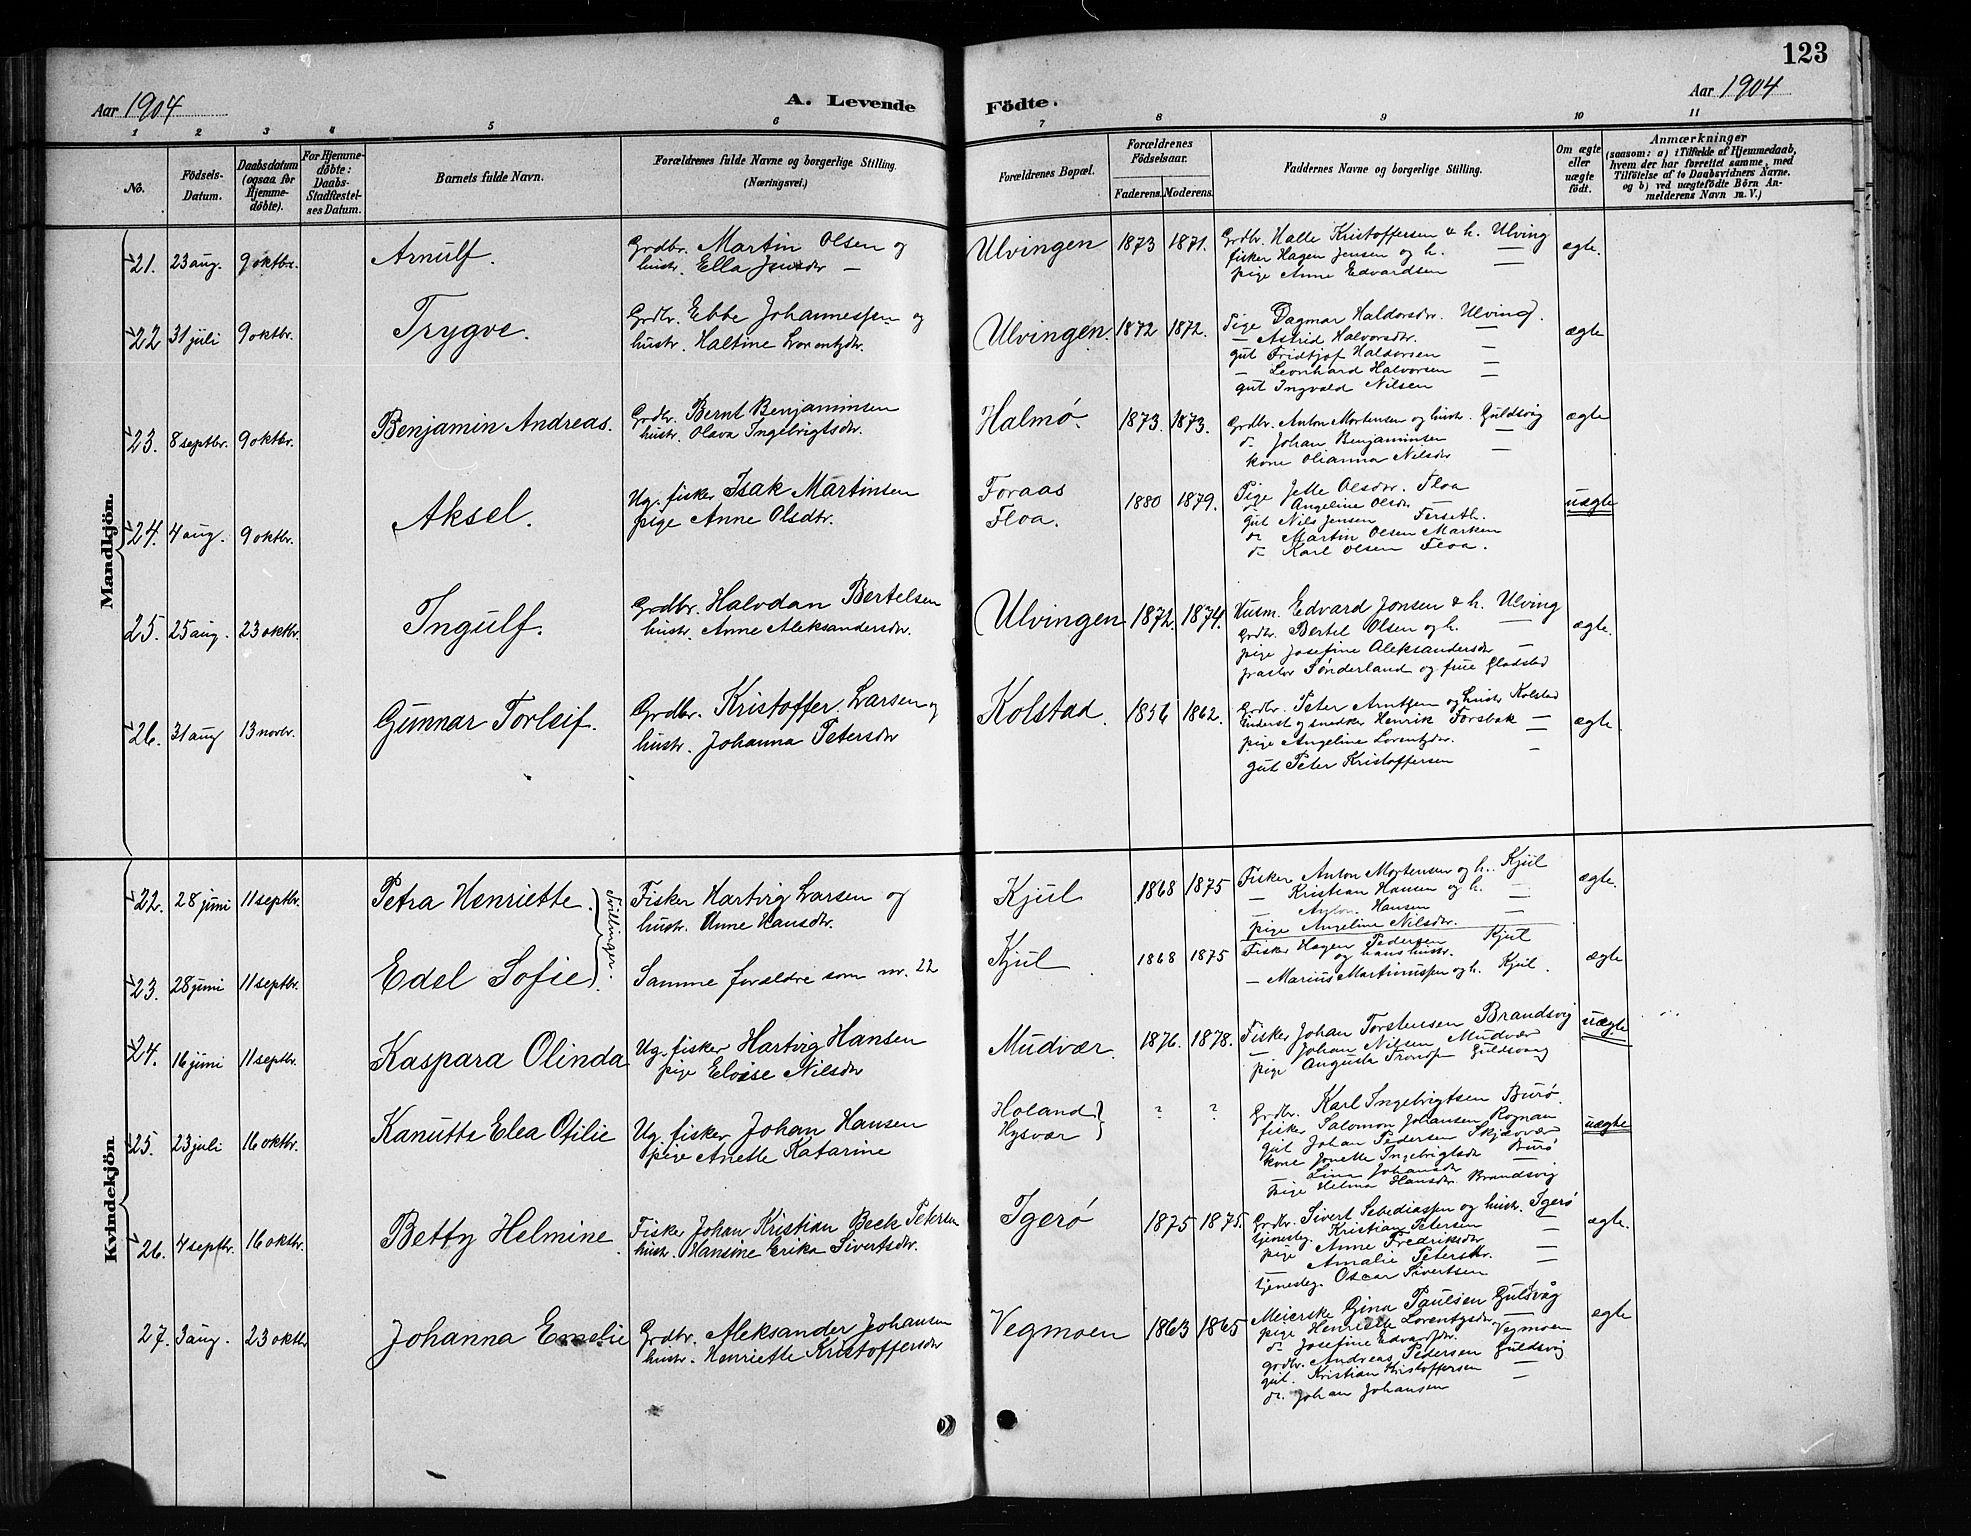 123
Aar 1904
A. Levende
Födte.
Aar 1904
1 2 3 4 5 6 7 8 9 10 11
No.
Födsels-
Datum.
Daabsdatum
(ogsaa for
Hjemme-
döbte).
For Hjemme-
döbte:
Daabs-
Stadfæstel-
ses Datum.
Barnets fulde Navn.
Forældrenes fulde Navne og borgerlige Stilling.
(Næringsvei.)
Forældrenes Bopæl.
Forældrenes
Födselsaar.
Faderens. Moderens.
Faddernes Navne og borgerlige Stilling.
Om ægte
eller
uægte
födt.
Anmærkninger
(saasom: a) i Tilfælde af Hjemmedaab,
hvem der har forrettet samme, med
Tilföielse af to Daabsvidners Navne.
og b) ved uægtefödte Börn An-
melderens Navn m. V.)
Mandkjön.
21. 23 aug. 9 oktbr. Arnulf.
Grdbr. Martin Olsen og
hustr. Ella Jensdtr —
Ulvingen 1873 1871.
Grdbr. Halle Kristoffersen & h. Ulving
fisker Hagen Jensen og h. —
pige Anne Edvardsen
ægte.
22 31 juli 9 oktbr. Trygve.
Grdbr. Ebbe Johannessen og
hustr. Haltine Lorentzdtr.
Ulvingen. 1872 1872.
Pige Dagmar Haldorsdtr. Ulving.
— Astrid Halvorsdtr. —
gut Fridtjof Haldorsen —
— Leonhard Halvorsen —
gut Ingvald Nilsen
ægte
23. 8 septbr. 9 oktbr. Benjamin Andreas.
Grdbr. Bernt Benjaminsen
hustr. Olava Ingebrigtsdtr.
Halmø. 1873. 1873.
Grdbr. Anton Mortensen og hustr. Guldsvig
do Johan Benjaminsen
kone Olianna Nilsdtr —
ægte
24. 4 aug. 9 oktbr. Aksel.
Ug. fisker Isak Martinsen
pige Anne Olsdtr.
Foraas
Floa.
1880 1879.
Pige Jette Olsdtr. Floa
do Angeline Olsdtr
Gut Nils Jensen Forseth.
do Martin Olsen Marken
do Karl Olsen Floa.
uægte
25. 25 aug. 23 oktbr. Ingulf.
Grdbr. Halvdan Bertelsen
hustr. Anne Aleksandersdtr.
Ulvingen 1872. 1874.
Husm. Edvard Jonsen & h. Ulving
Grdbr. Bertel Olsen og h. —
pige Josefine Aleksandersdtr —
pastor Sønderland og frue Gladstad
ægte.
26. 31 aug 13 novbr. Gunnar Torleif.
Grdbr. Kristoffer Larsen og
hustr. Johanna Petersdtr
Kolstad. 1856 1862.
Grdbr. Peter Arntzen og hustr Kolstad
Inderst og snedker Henrik Forsbak —
pige Angeline Lorentzdtr. —
gut Peter Kristoffersen
ægte
Kvindekjön
22. 28 juni 11 septbr. Petra Henriette.
Tvillinger.
Fisker Hartvig Larsen og
hustr. Anne Hansdtr.
Kjul 1868 1875
Fisker Anton Mortensen og h. Kjul
— Kristian Hansen og h. —
— Anton Hansen —
pige Angeline Nilsdtr.
ægte.
23. 28 juni 11 septbr. Edel Sofie.
Samme forældre som nr. 22
Kjul 1868 1875
Fisker Hagen Pedersen Kjul
og hans hustr.
— Marius Martinussen og h. Kjul.
ægte
24. 16 juni 11 septbr. Kaspara Olinda
Ug. fisker Hartvig Hansen
pige Eloise Nilsdtr
Mudvær. 1876. 1878.
Fisker Johan Torstensen Brandsvig
— Johan Nilsen Mudvær
pige Augusta Guldsvaag
uægte
25. 23 juli 16 oktbr. Kanutte Elea Otilie
Ug. fisker Johan Hansen
pige Anette Katarine
Holand
Hysvær
? ?
Grdbr. Karl Ingebrigtsen Burø.
fisker Salomon Johansen Rognan
gut Johan Pedersen Skjævær
kone Jonette Ingebrigtsdtr Burø
Lina Johansdtr —
pige Helma Hansdtr. Brandsvig
uægte
26. 4 septbr. 16 oktbr. Betty Helmine.
Fisker Johan Kristian Beck Petersen
hustr. Hansine Erika Sivertsdtr.
Igerø 1875 1875.
Grdbr. Sivert Sebediassen og hustr. Igerø
tjenestg. Kristian Petersen —
pige Anne Fredriksdtr
pige Amalie Petersdtr. —
tjenestg. Oscar Sivertsen —
ægte.
27. 3 aug. 23 oktbr Johanna Emelie
Grdbr. Aleksander Johansen
hustr. Henriette Kristoffersdtr
Vegmoen 1863 1865
Meierske Gina Paulsen Guldsvåg
pige Henriette Lorentzdtr. —
do Josefine Edvardsdtr. Vegmoen
grdbr. Andreas Pedersen Guldsvig
gut. Kristian Kristoffersen —
do. Johan Johansen
ægte